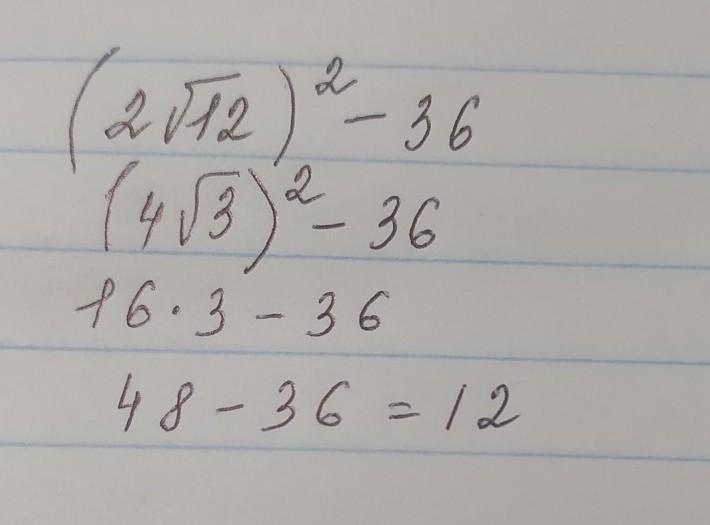 (2√12)² - 36
(4√3)² - 36
16 · 3 - 36
48 - 36 = 12